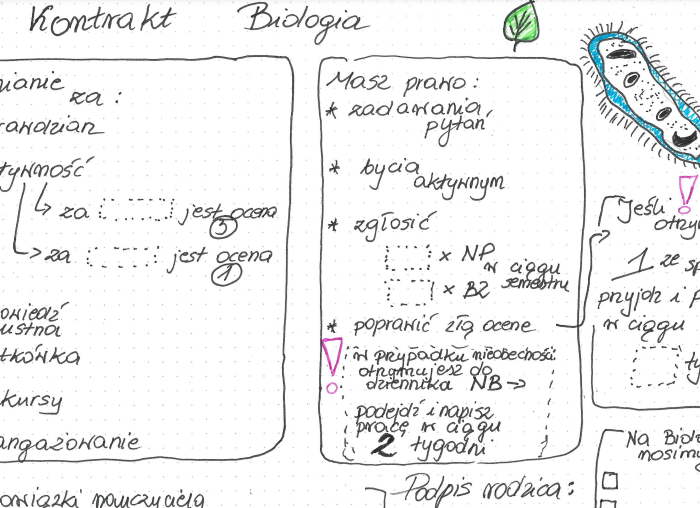 Kontrakt Biologia
nianie
za :
rawdzian
tywność
za jest ocena
5
za jest ocena
1
owiedź
ustna
tkówka
kursy
angażowanie
owiązki nauczyciela
Masz prawo :
* zadawania
pytań
* bycia
aktywnym
* zgłosić
x NP
w ciągu
x BZ semestru
* poprawić złą ocene
! w przypadku nieobecności
otrzymujesz do
dziennika NB →
podejdź i napisz
pracę w ciągu
2 tygodni
Podpis rodzica :
!
Jeśli
otrzy
1 ze sp
przyjdz i p
w ciągu
ty
Na Biol
nosimy